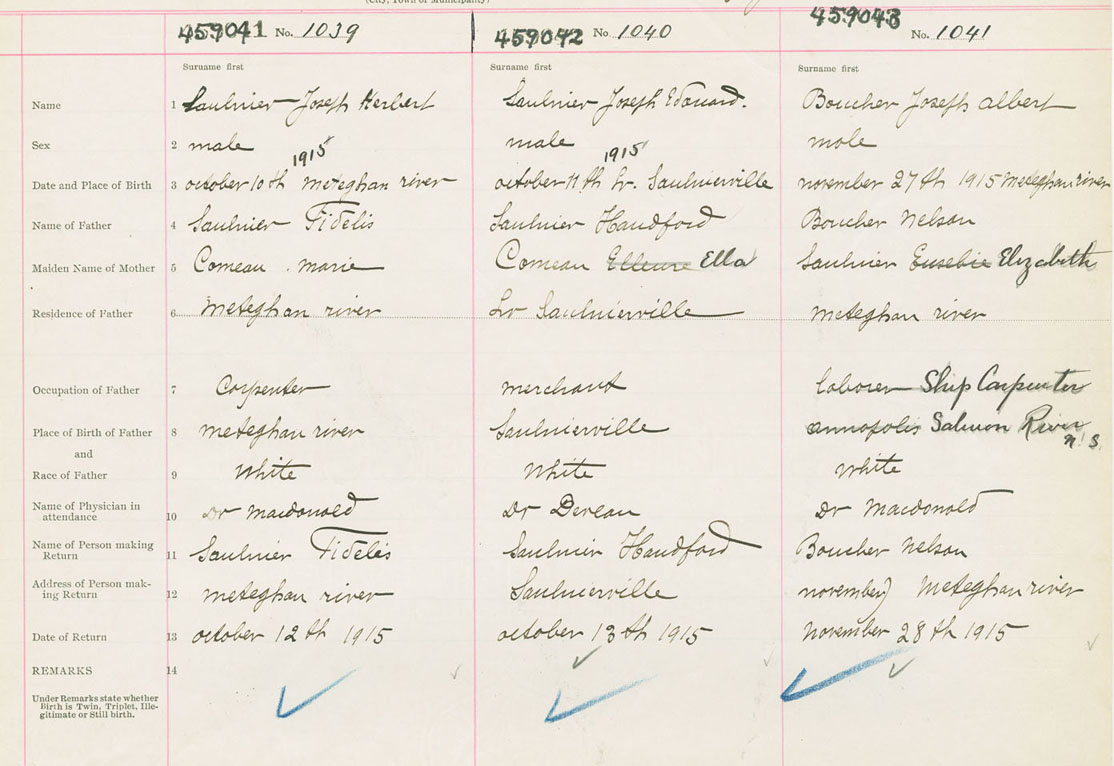 (City, Town or Municipality)
459041 No. 1039 459042 No 1040 459043 No. 1041
Surname first Surname first Surname first
Name 1 Saulnier Joseph Herbert Saulnier Joseph Edouard. Boucher Joseph albert
Sex 2 male male male
1915 1915
Date and Place of Birth 3 october 10th meteghan river october 11th Lr. Saulnierville november 27th 1915 Meteghan river
Name of Father 4 Saulnier Fidelis Saulnier Handford Boucher Nelson
Maiden Name of Mother 5 Comeau marie Comeau Ella Saulnier Eusebie Elizabeth
Residence of Father 6 meteghan river Lr Saulnierville meteghan river
Occupation of Father 7 Carpenter merchant laborer Ship Carpenter
Place of Birth of Father 8 meteghan river Saulnierville annapolis Salmon River
and N.S.
Race of Father 9 White White White
Name of Physician in
attendance 10 Dr Macdonald Dr Dr Macdonald
Name of Person making
Return 11 Saulnier Fidelis Saulnier Handford Boucher Nelson
Address of Person mak-
ing Return 12 meteghan river Saulnierville november) Meteghan river
Date of Return 13 october 12th 1915 october 13th 1915 November 28th 1915
REMARKS 14
Under Remarks state whether
Birth is Twin, Triplet, Ille-
gitimate or Still birth.